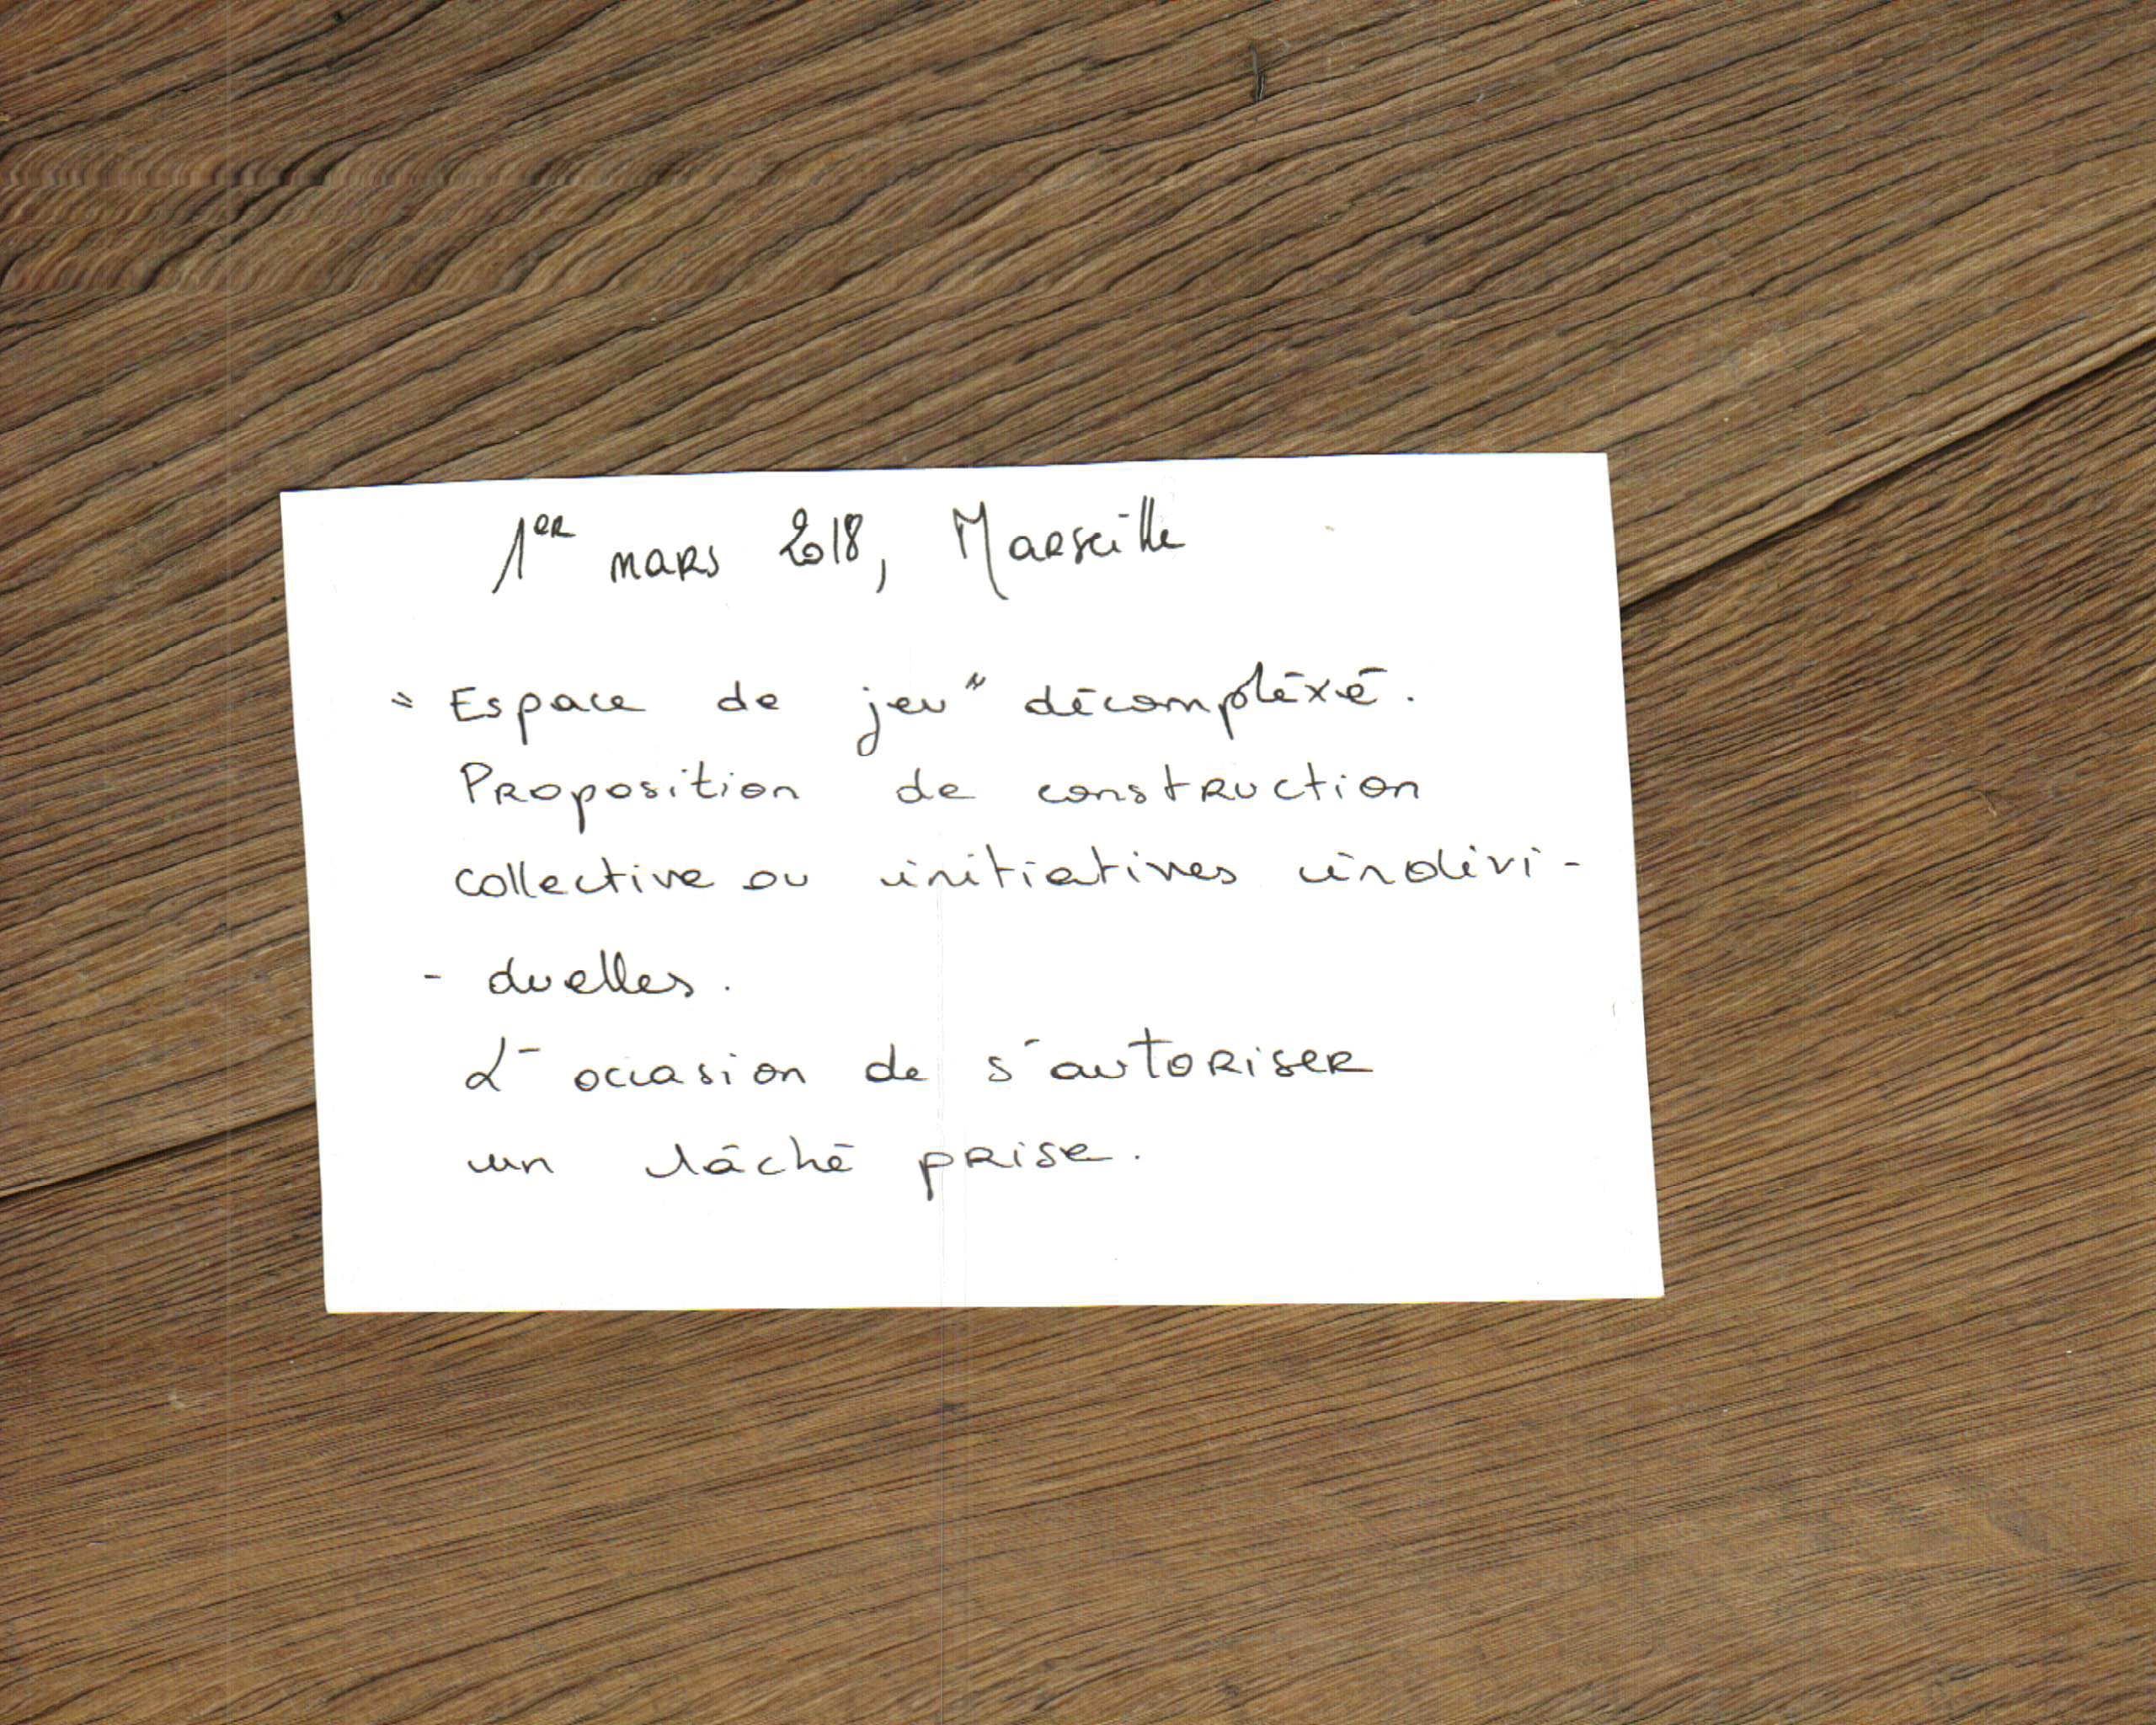 1er mars 2018, Marseille
"Espace de jeu" décompléxé.
Proposition de construction
collective ou initiatives indivi-
- duelles.
L'occasion de s'autoriser
un lâché prise.